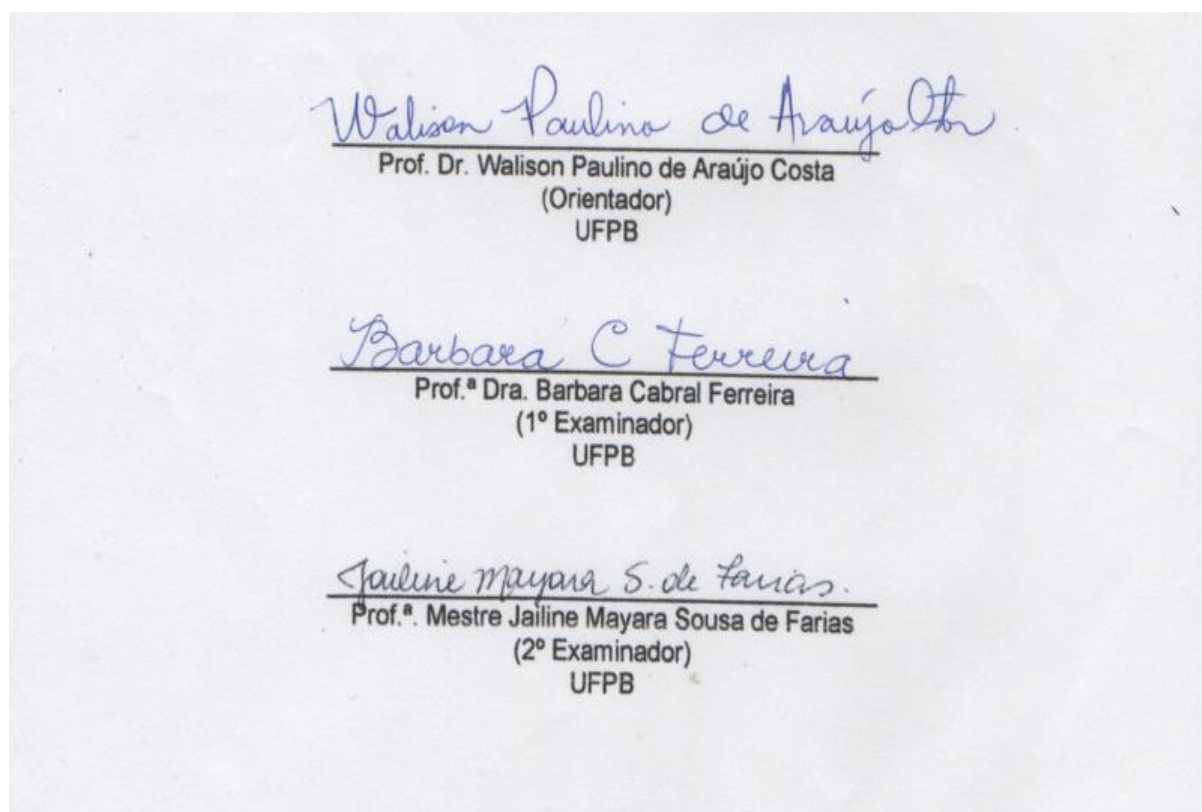 Walison Paulino de Araújo
Prof. Dr. Walison Paulino de Araújo Costa
(Orientador)
UFPB
Barbara C Ferreira
Prof.ª Dra. Barbara Cabral Ferreira
(1º Examinador)
UFPB
Jailine Mayara S. de Farias.
Prof.ª. Mestre Jailine Mayara Sousa de Farias
(2º Examinador)
UFPB